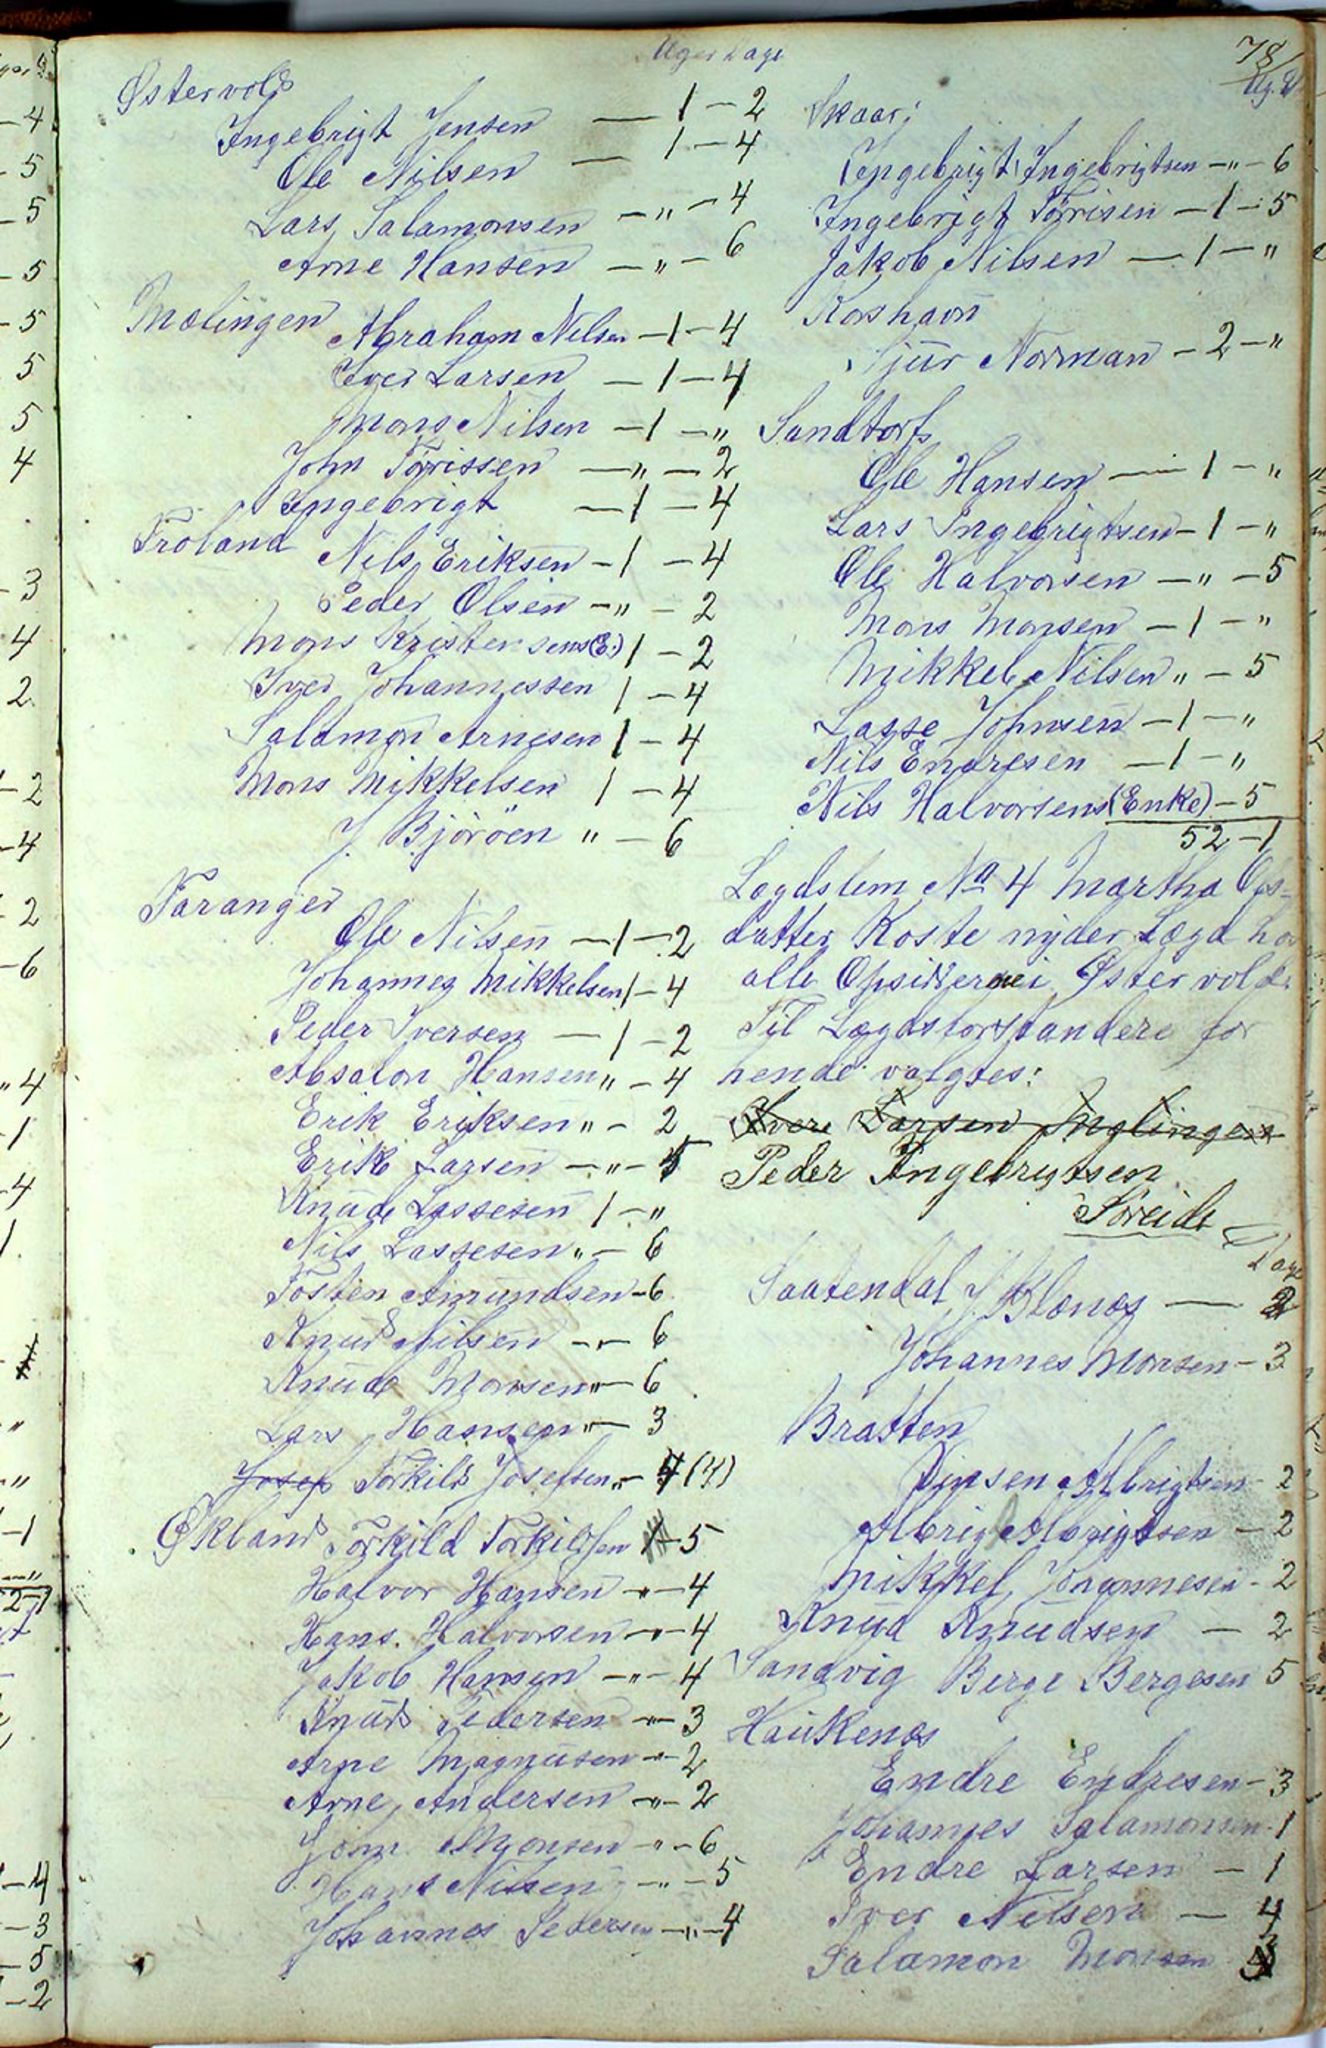 Uger Dage
78
Ug. D
Østervold
Ingebrigt Jensen — 1 — 2
Ole Nilsen — 1 — 4
Lars Salamonsen — " — 4
Arne Hansen — " — 6
Mælingen Abraham Nilsen — 1 — 4
Iver Larsen — 1 — 4
Mons Nilsen — 1 — "
John Tørrissen — " — 2
Ingebrigt — 1 — 4
Froland Nils Eriksen — 1 — 4
Peder Olsen — " — 2
Mons Kristensens (E.) 1 — 2
Iver Johannessen 1 — 4
Salamon Arnesen 1 — 4
Mons Mikkelsen 1 — 4
J. Björöen " — 6
Faranger
Ole Nilsen — 1 — 2
Johannes Mikkelsen 1 — 4
Peder Iversen — 1 — 2
Absalon Hansen " — 4
Erik Eriksen " — 2
Erik Larsen — " — 5
Knud Lassesen 1 — "
Nils Lassesen " — 6
Tosten Amundsen — 6
Knud Nilsen — " — 6
Knud Monsen " — 6
Lars Hansen " — 3
Josep Torkild Josefsen " — 4 (4)
Økland Torkild Torkildsen — 5
Halvor Hansen — " — 4
Hans Halvorsen — " — 4
Jakob Hansen — " — 4
Knud Pedersen — " — 3
Arne Magnusen — " — 2
Arne Andersen — " — 2
John Monsen — " — 6
Hans Nilsen — " — 5
Johannes Pedersen — " — 4
Skaar:
Ingebrigt Ingebrigtsen — " — 6
Ingebrigt Törrisen — 1 — 5
Jakob Nilsen — 1 — "
Korshavn
Sjur Norman — 2 — "
Sandtorf
Ole Hansen — 1 — "
Lars Ingebrigtsen — 1 — "
Ole Halvorsen — " — 5
Mons Monsen — 1 — "
Mikkel Nilsen " — 5
Lasse Johnsen — 1 — "
Nils Endresen — 1 — "
Nils Halvorsens (Enke) — 5
52 — 1
Lægdslem No 4 Martha Ols=
datter Koste nyder Lægd hos
alle Opsidderne i Østervold.
Til Lægdsforstandere for
hende valgtes:
Ivere Larsen Mælingen
Peder Ingebrigtsen
Söreide
Dage
Saatendal J. Klænos — 2
Johannes Monsen — 3
Bratten
Albrigtsen — 2
Albrigt Albrigtsen — 2
Mikkel Johannesen — 2
Knud Knudsen — 2
Sandvig Berge Bergesen 5
Haukenæs
Endre Endresen — 3
Johannes Salamonsen — 1
Endre Larsen — 1
Iver Nilsen — 4
Salamon Monsen 3